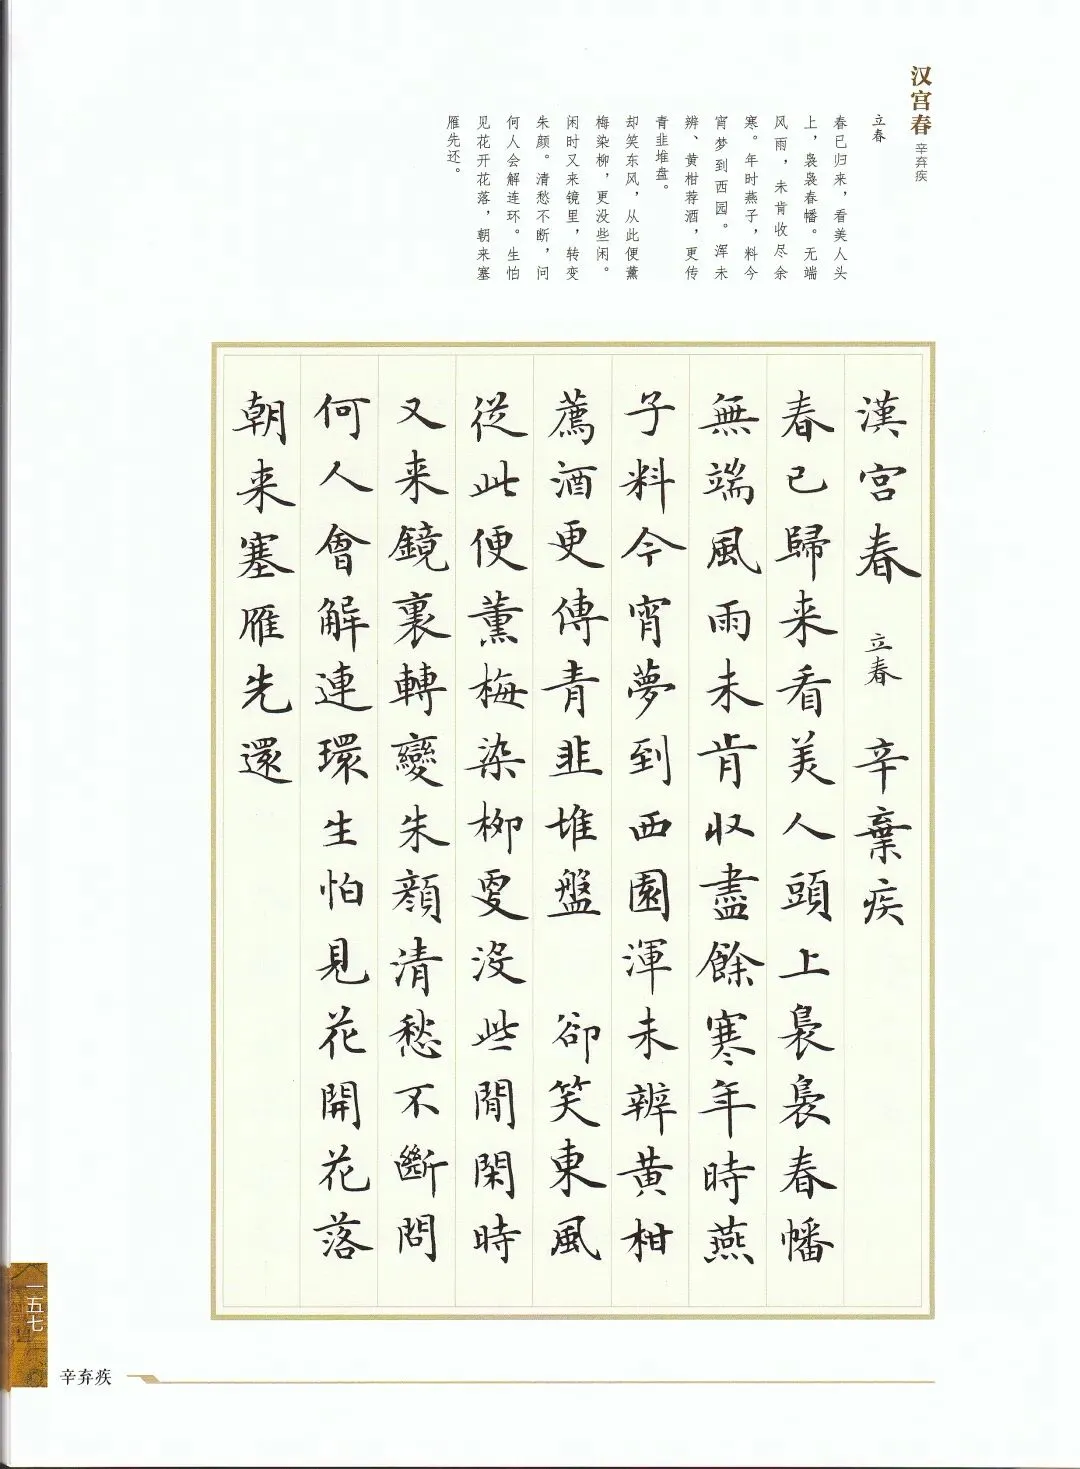 汉宫春 辛弃疾
立春
春已归来，看美人头
上，袅袅春幡。无端
风雨，未肯收尽余
寒。年时燕子，料今
宵梦到西园。浑未
辨、黄柑荐酒，更传
青韭堆盘。
却笑东风，从此便薰
梅染柳，更没些闲。
闲时又来镜里，转变
朱颜。清愁不断，问
何人会解连环。生怕
见花开花落，朝来塞
雁先还。
漢宮春 立春 辛棄疾
春已歸来看美人頭上裊裊春幡
無端風雨未肯收盡餘寒年時燕
子料今宵夢到西園渾未辨黄柑
薦酒更傳青韭堆盤 卻笑東風
從此便薰梅染柳更没些閒閑時
又来鏡裏轉變朱顔清愁不斷問
何人會解連環生怕見花開花落
朝来塞雁先還
一五七
辛弃疾